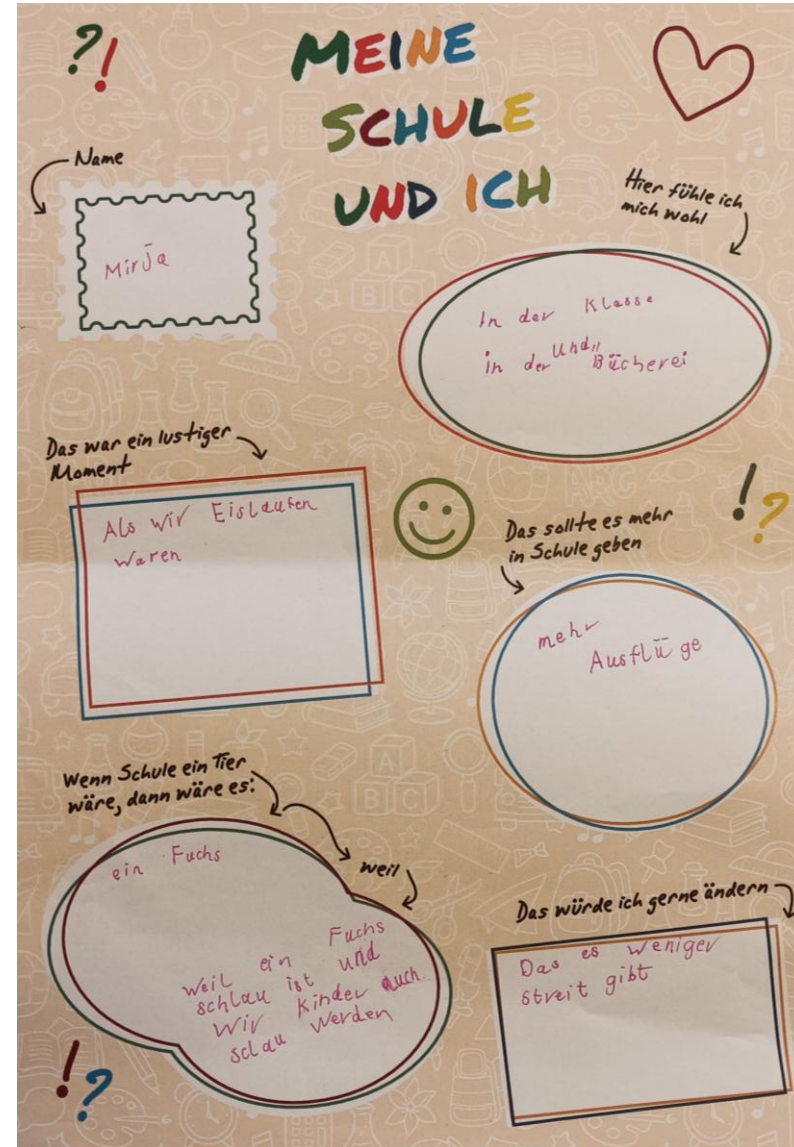 ?!
MEINE
SCHULE
UND ICH
Name
Mirja
Hier fühle ich
mich wohl
In der Klasse
und
in der Bücherei
Das war ein lustiger
Moment
Als wir Eislaufen
waren
!?
Das sollte es mehr
in Schule geben
mehr
Ausflüge
Wenn Schule ein Tier
wäre, dann wäre es:
ein Fuchs
weil
weil ein Fuchs
schlau ist und
wir Kinder auch
sclau werden
Das würde ich gerne ändern
Das es weniger
streit gibt
!?
A
B C
ARG
A
B C